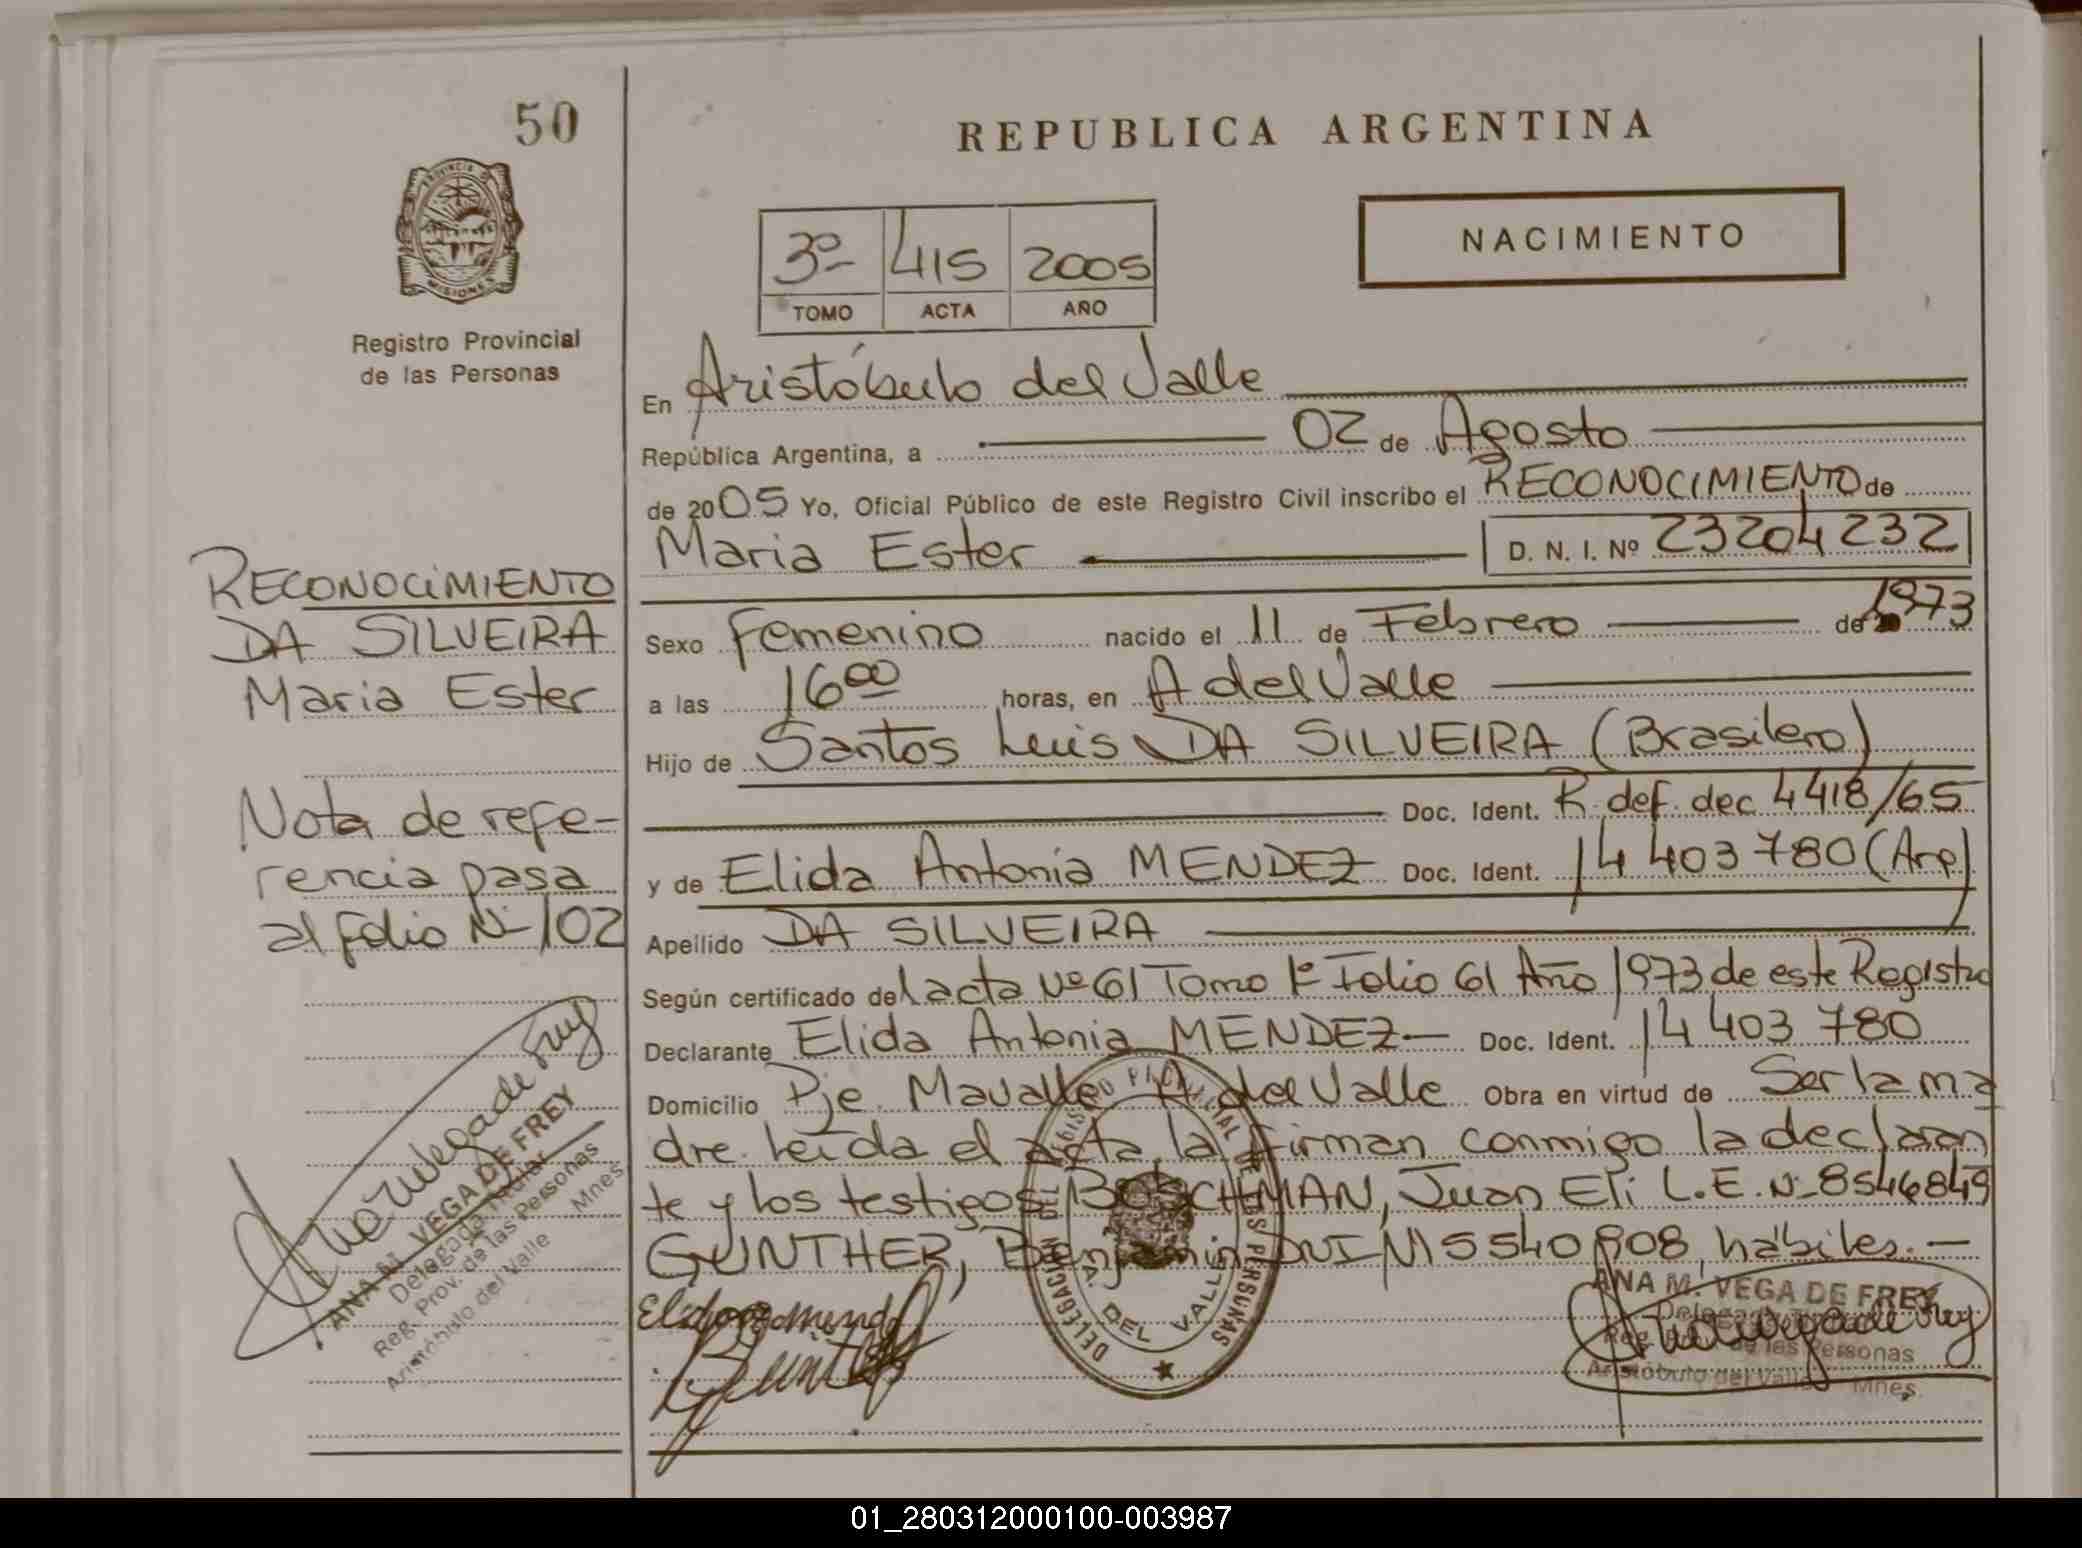 50
PROVINCIA D
MISIONES
Registro Provincial
de las Personas
RECONOCIMIENTO
DA SILVEIRA
Maria Ester
Nota de refe-
rencia pasa
al folio Nº 102
ANA M. VEGA DE FREY
Delegada Titular
Reg. Prov. de las Personas
Aristóbulo del Valle Mnes
REPUBLICA ARGENTINA
NACIMIENTO
3º 415 2005
TOMO ACTA AÑO
En Aristóbulo del Valle
República Argentina, a 02 de Agosto
de 2005 Yo, Oficial Público de este Registro Civil inscribo el RECONOCIMIENTO de
Maria Ester D. N. I. Nº 23204232
Sexo Femenino nacido el 11 de Febrero de 1973
a las 16 00 horas, en A del Valle
Hijo de Santos Luis DA SILVEIRA (Brasilero)
Doc. Ident. R. def. dec. 4418/65
y de Elida Antonia MENDEZ Doc. Ident. 14 403 780 (Arg)
Apellido DA SILVEIRA
Según certificado del acta Nº 61 Tomo 1º Folio 61 Año 1973 de este Registro
Declarante Elida Antonia MENDEZ — Doc. Ident. 14 403 780
Domicilio Pje. Mavalle A del Valle Obra en virtud de Ser la ma
dre. Leída el acta, la firman conmigo la declaran
te y los testigos BOSCHMAN, Juan Eli L.E. Nº 8546849
GUNTHER, Benjamin DNI Nº 5540808, hábiles. —
DELEGACION DEL REGISTRO PROVINCIAL DE LAS PERSONAS
A. DEL VALLE
ANA M. VEGA DE FREY
Delegada Titular
Reg. Prov. de las Personas
Aristóbulo del Valle Mnes.
01_280312000100-003987